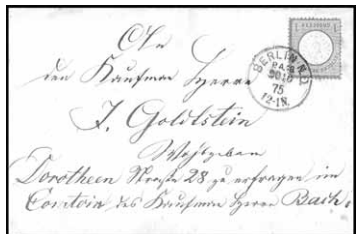 An
den Kaufman Herrn
J. Goldtstein
Wohlgeboren
Dorotheen Strasse 28 zu erfragen im
Comtoir des Kaufman Herrn Bach.
BERLIN.N.
75
12-1N.